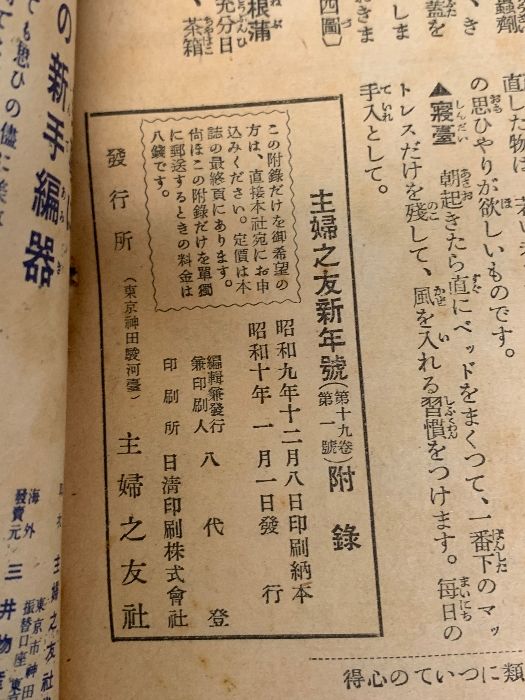 蟲劑
蓋を
しま
おきま
四圖〕
根蒲
充分日
、茶箱
直した物は
の思ひやりが欲しいものです。
▲寢臺 朝起きたら直にベッドをまくつて、一番下のマッ
トレスだけを殘して、風を入れる習慣をつけます。毎日の
手入として。
主婦之友新年號(第十九卷第一號)附錄
昭和九年十二月八日印刷納本
昭和十年一月一日發行
編輯兼發行兼印刷人 八代登
印刷所 日淸印刷株式會社
發行所 (東京神田駿河臺) 主婦之友社
この附錄だけを御希望の
方は、直接本社宛にお申
込みください。定價は本
誌の最終頁にあります。
尙ほこの附錄だけを單獨
に郵送するときの料金は
八錢です。
類についての心得
の新手編器
ても思ひの儘に美
海外發賣元 三井物產
主婦之友
東京市神田
振替口座 東京